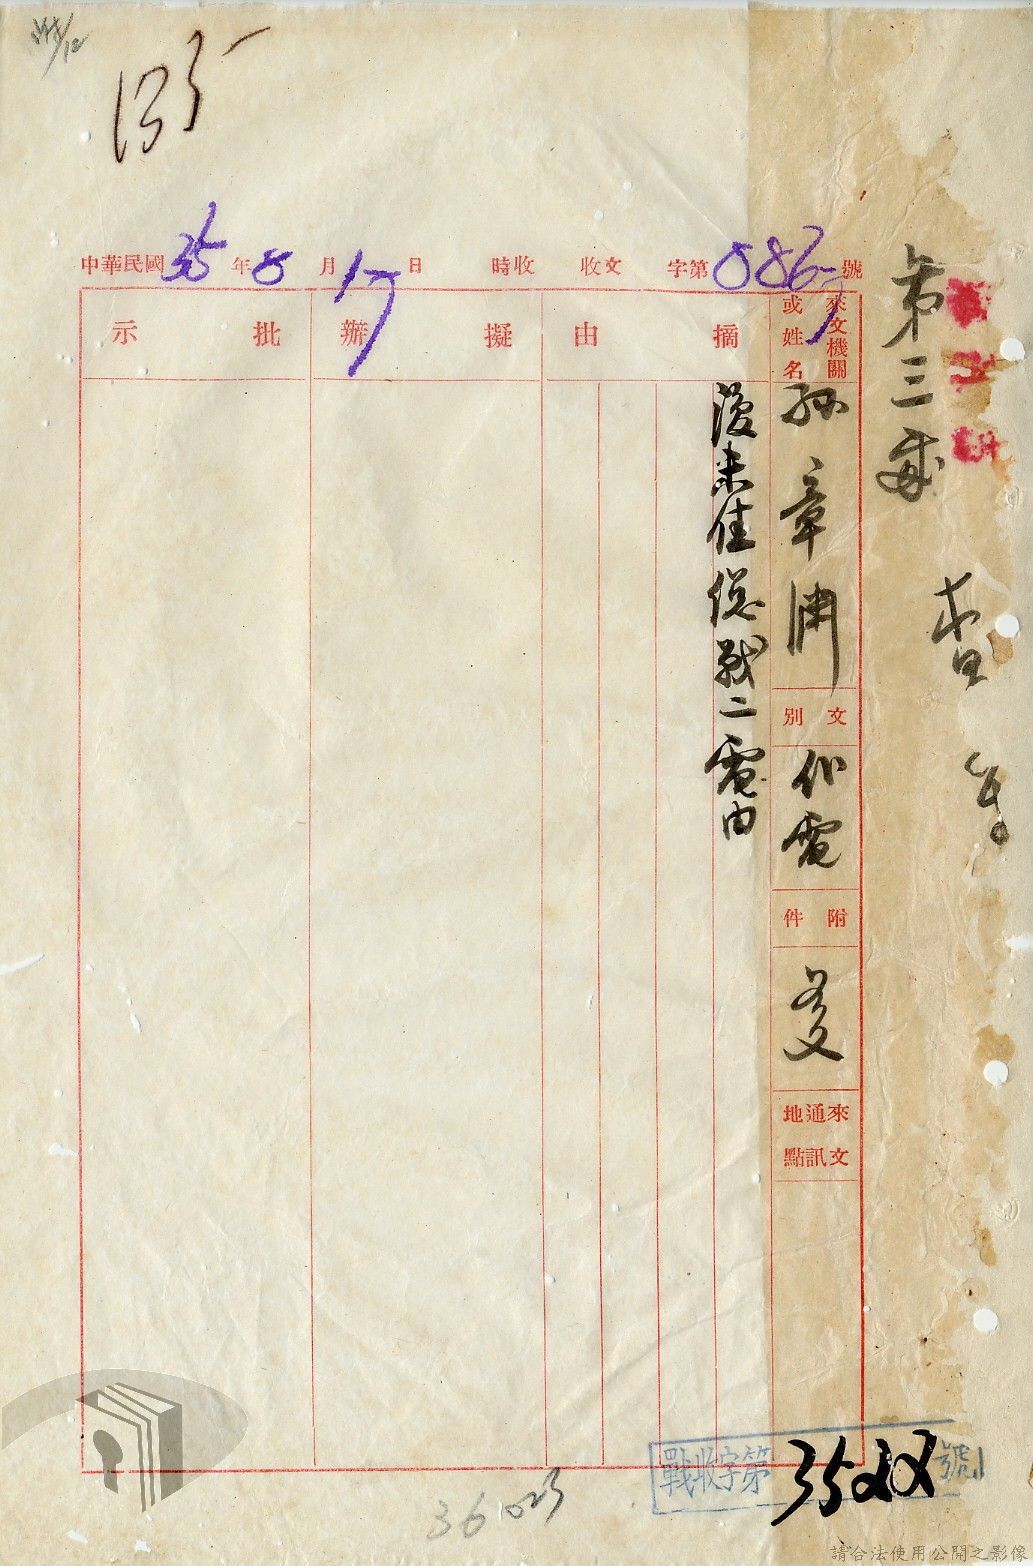 135
中華民國35年8月17日 時收 收文 字第886號
來文機關或姓名
孫章
文別
代電
附件
來文通訊地點
摘由
復未佳總戰二電由
擬辦
批示
第三
戰收字第3522號
36 1023
請合法使用公開之影像